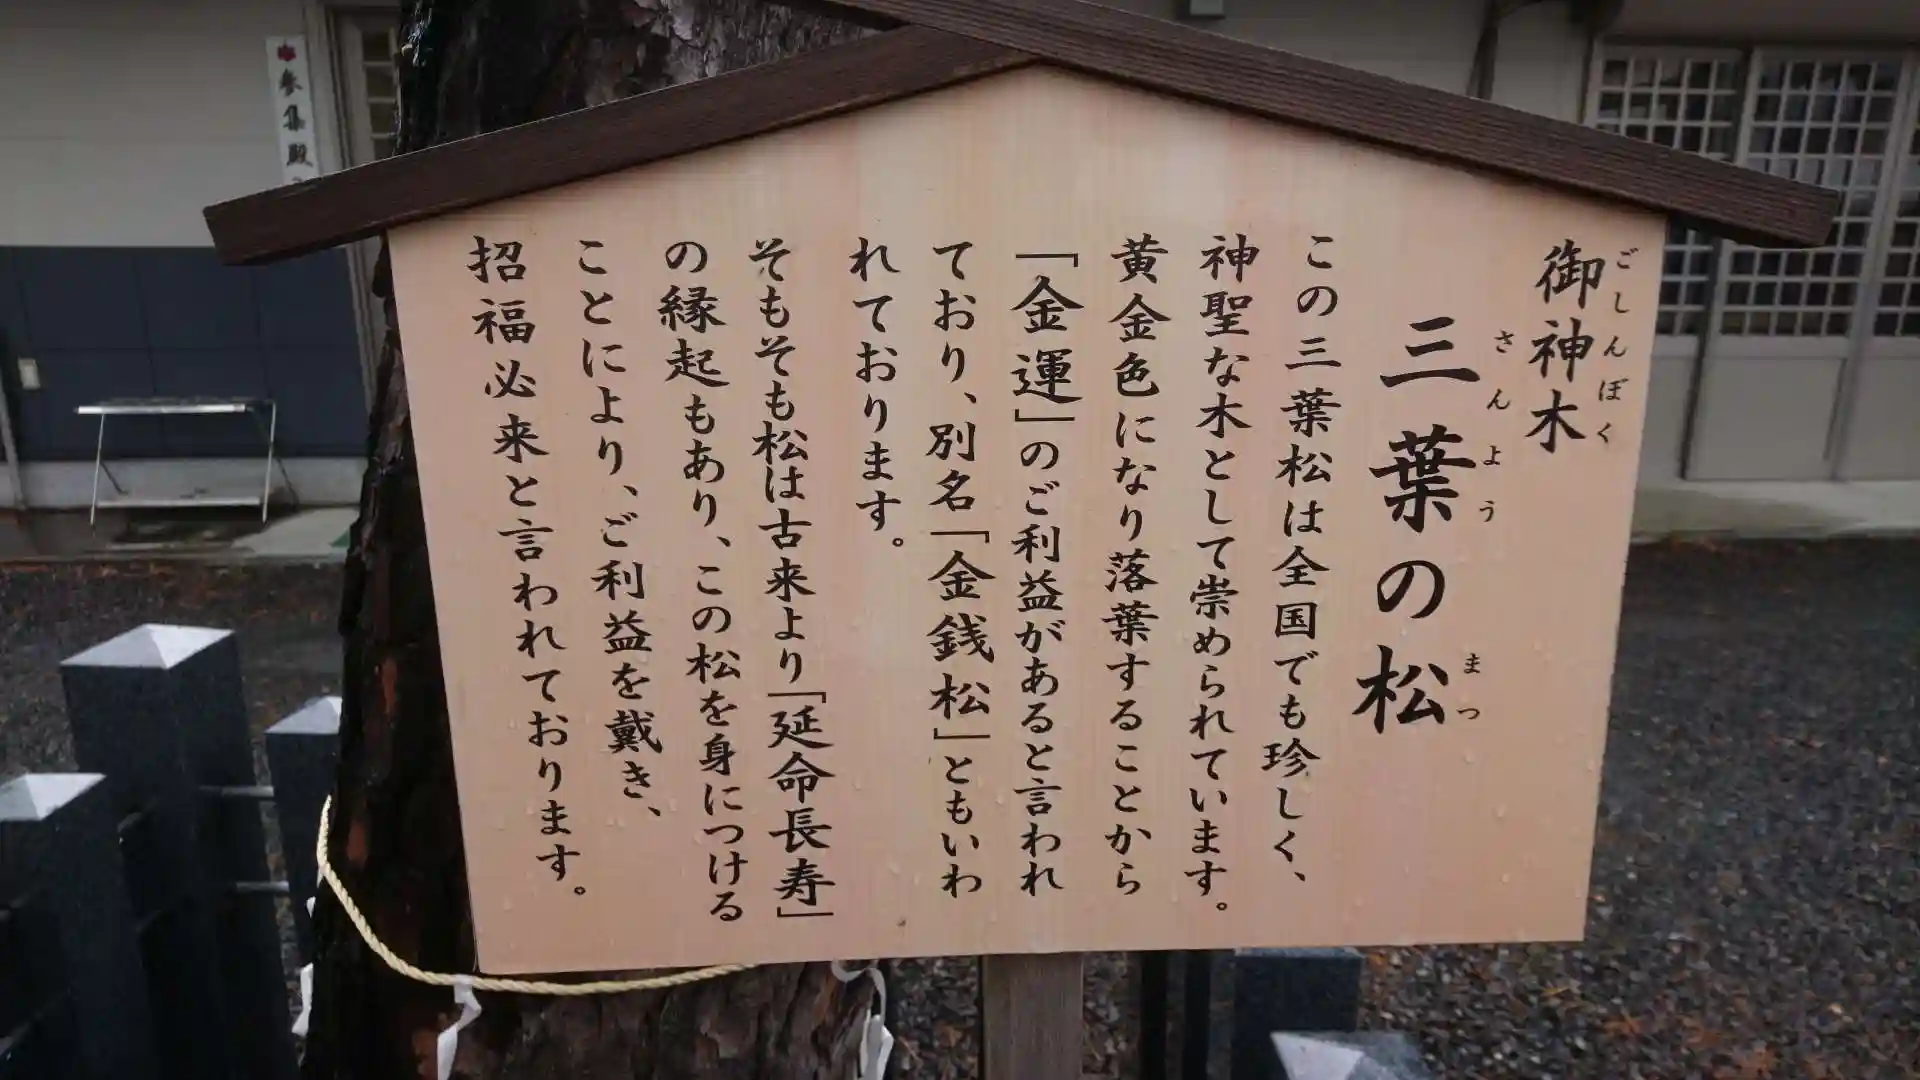 御神木
ごしんぼく
三葉の松
さんよう
まつ
この三葉松は全国でも珍しく、
神聖な木として崇められています。
黄金色になり落葉することから
「金運」のご利益があると言われ
ており、別名「金銭松」ともいわ
れております。
そもそも松は古来より「延命長寿」
の縁起もあり、この松を身につける
ことにより、ご利益を戴き、
招福必来と言われております。
参集殿